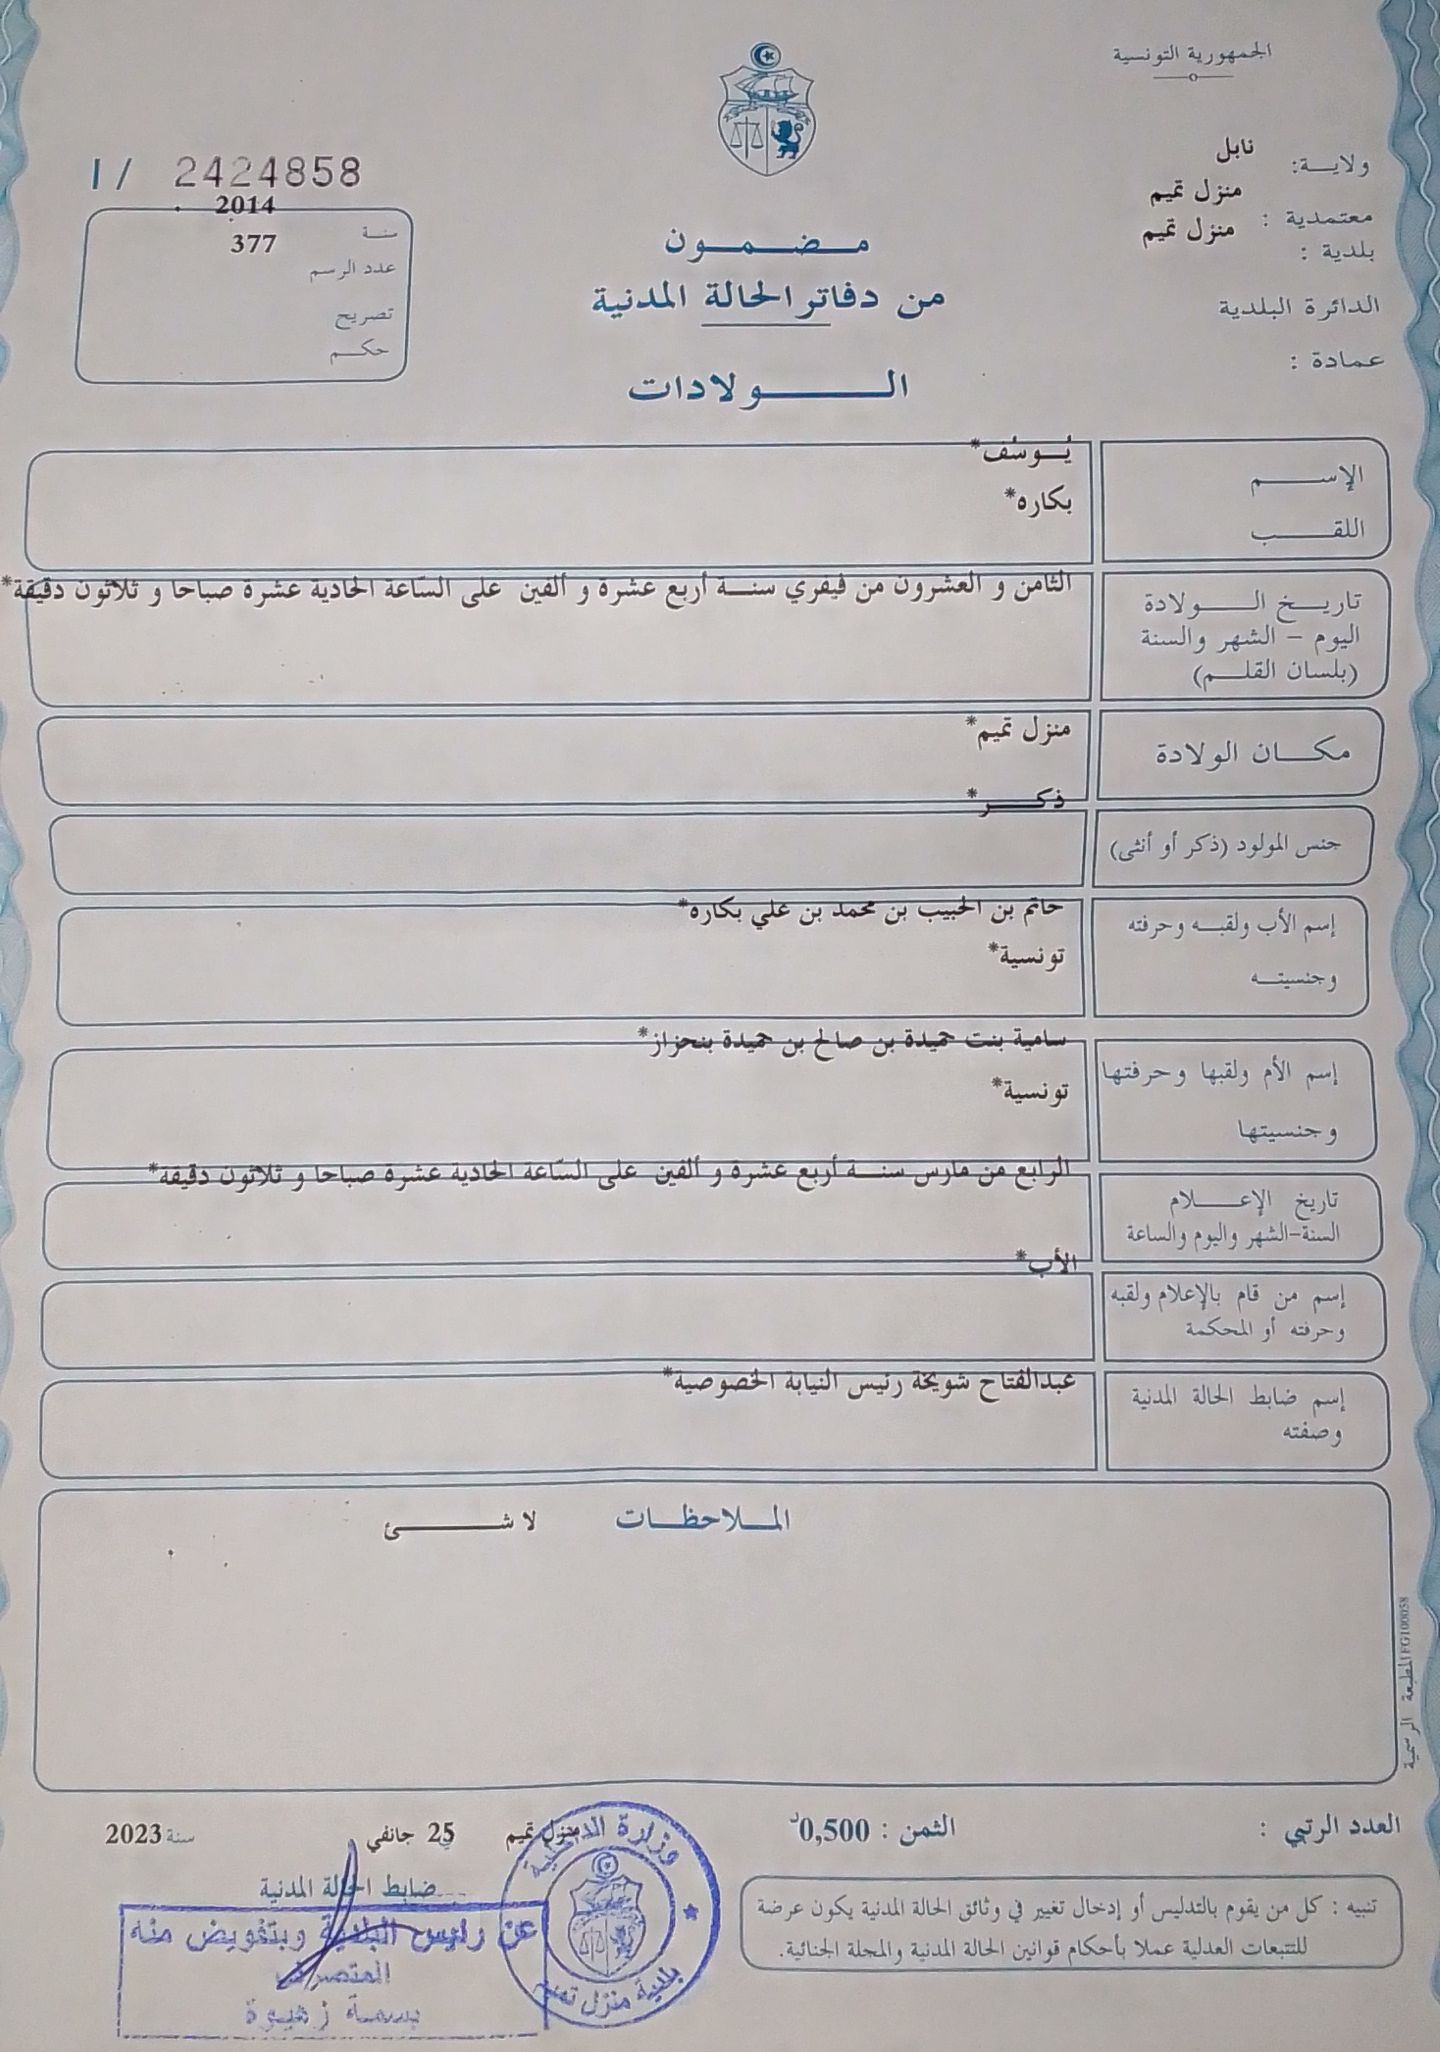 الجمهورية التونسية
ولاية: نابل
معتمدية : منزل تميم
بلدية : منزل تميم
الدائرة البلدية
عمادة :
1/ 2424858
سنة 2014
عدد الرسم 377
تصريح
حكم
مضمون
من دفاتر الحالة المدنية
الولادات
الإسم يُوسُف*
اللقب بكاره*
تاريخ الولادة
اليوم – الشهر والسنة
(بلسان القلم)
الثامن و العشرون من فيفري سنة أربع عشرة و ألفين على السّاعة الحادية عشرة صباحا و ثلاثون دقيقة*
مكان الولادة منزل تميم*
جنس المولود (ذكر أو أنثى) ذكر*
إسم الأب ولقبه وحرفته حاتم بن الحبيب بن محمد بن علي بكاره*
وجنسيته تونسية*
إسم الأم ولقبها وحرفتها سامية بنت حميدة بن صالح بن حميدة بنحزاز*
وجنسيتها تونسية*
تاريخ الإعلام
السنة-الشهر واليوم والساعة
الرابع من مارس سنة أربع عشرة و ألفين على السّاعة الحادية عشرة صباحا و ثلاثون دقيقة*
إسم من قام بالإعلام ولقبه
وحرفته أو المحكمة
الأب*
إسم ضابط الحالة المدنية
وصفته
عبدالفتاح شويخة رئيس النيابة الخصوصية*
الملاحظات لا شئ
المطبعة الرسمية FG100058
العدد الرتبي :
الثمن : 0,500د
منزل تميم في 25 جانفي سنة 2023
ضابط الحالة المدنية
عن رئيس البلدية وبتفويض منه
المتصرف
بسمة زهيوة
وزارة الداخلية
بلدية منزل تميم
تنبيه : كل من يقوم بالتدليس أو إدخال تغيير في وثائق الحالة المدنية يكون عرضة
للتتبعات العدلية عملا بأحكام قوانين الحالة المدنية والمجلة الجنائية.